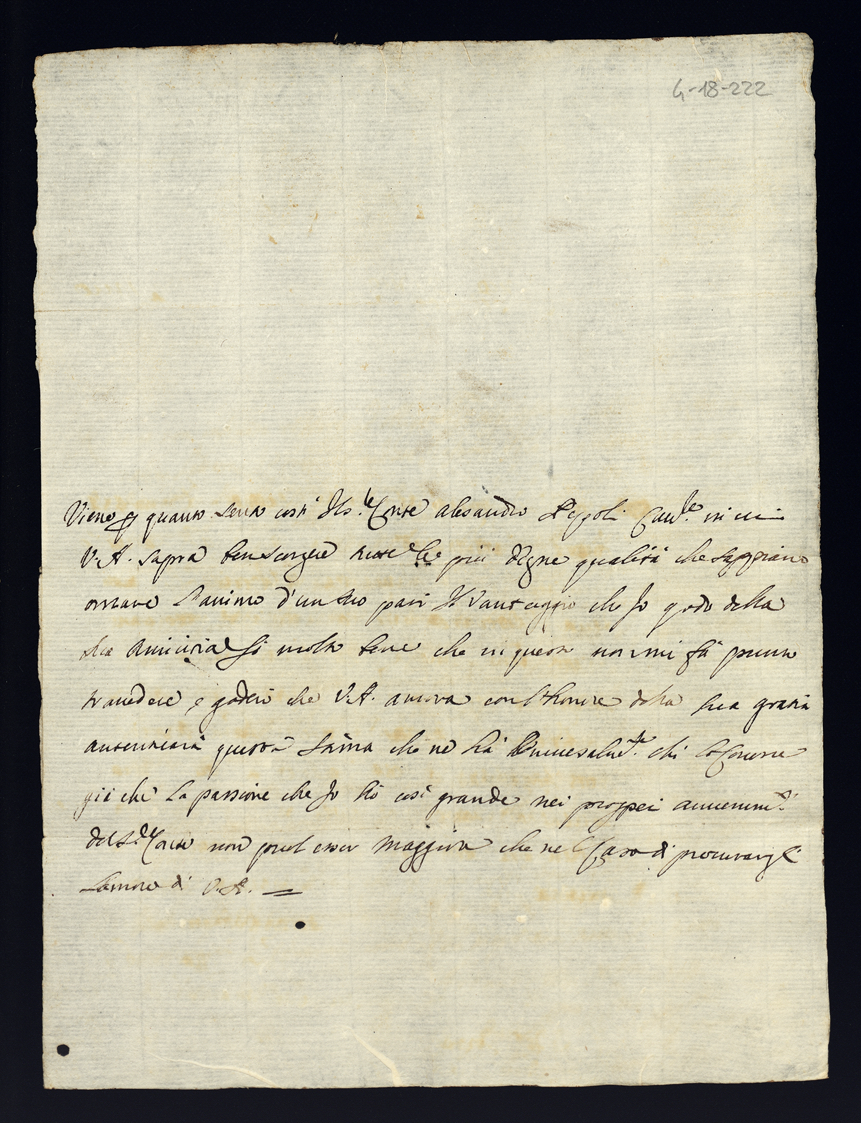 4-18-222
Viene p quanto sento costì Il s.r Conte alesandro Pepoli Cau.re in cui
V.A. sapra ben scorgere tutte le più degne qualità che sappiano
ornare l'animo d'un suo pari Il Vantaggio che Jo godo della
sua Amicizia fà molto bene che in questo non mi fà punto
travedere e goderò che V.A. ancora con l'honore della sua grazia
autentichi questa stima che ne hà chi lo Conosce
già che la passione che Jo hò così grande nei prosperi auuenim.ti
del S.r Conte non puol esser Maggiore che nel Caso di procurargli
l'amore di V.A.